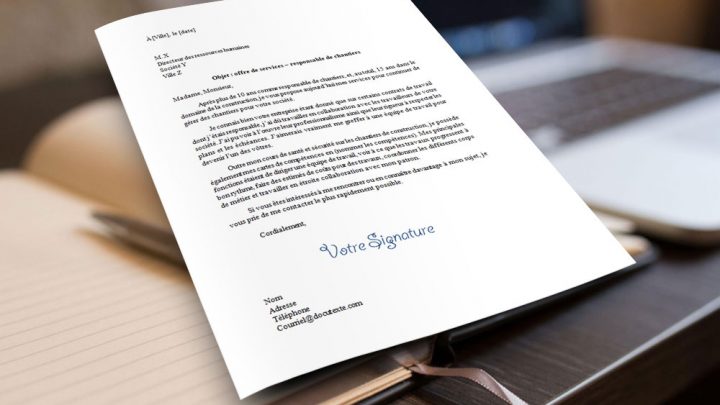 À [Ville], le [date]
M. X
Directeur des ressources humaines
Société Y
Ville Z
Objet : offre de services – responsable de chantiers
Madame, Monsieur,
Après plus de 10 ans comme responsable de chantiers, et, au total, 15 ans dans le
domaine de la construction, je vous propose aujourd'hui mes services pour continuer de
gérer des chantiers pour votre société.
Je connais bien votre entreprise étant donné que sur certains contrats de travail
dont j'étais responsable, j'ai dû travailler en collaboration avec les travailleurs de votre
société. J'ai pu voir à l'œuvre leur professionnalisme ainsi que leur rigueur à respecter les
plans et les échéances. J'aimerais vraiment me greffer à une équipe de travail pour
devenir l'un des vôtres.
Outre mon cours de santé et sécurité sur les chantiers de construction, je possède
également mes cartes de compétences en (nommer les compétences). Mes principales
fonctions étaient de diriger une équipe de travail, voir à ce que les travaux progressent à
bon rythme, faire des estimés de coûts pour des travaux, coordonner les différents corps
de métier et travailler en étroite collaboration avec mon patron.
Si vous êtes intéressés à me rencontrer ou en connaître davantage à mon sujet, je
vous prie de me contacter le plus rapidement possible.
Cordialement,
Votre Signature
Nom
Adresse
Téléphone
Courriel@docutexte.com